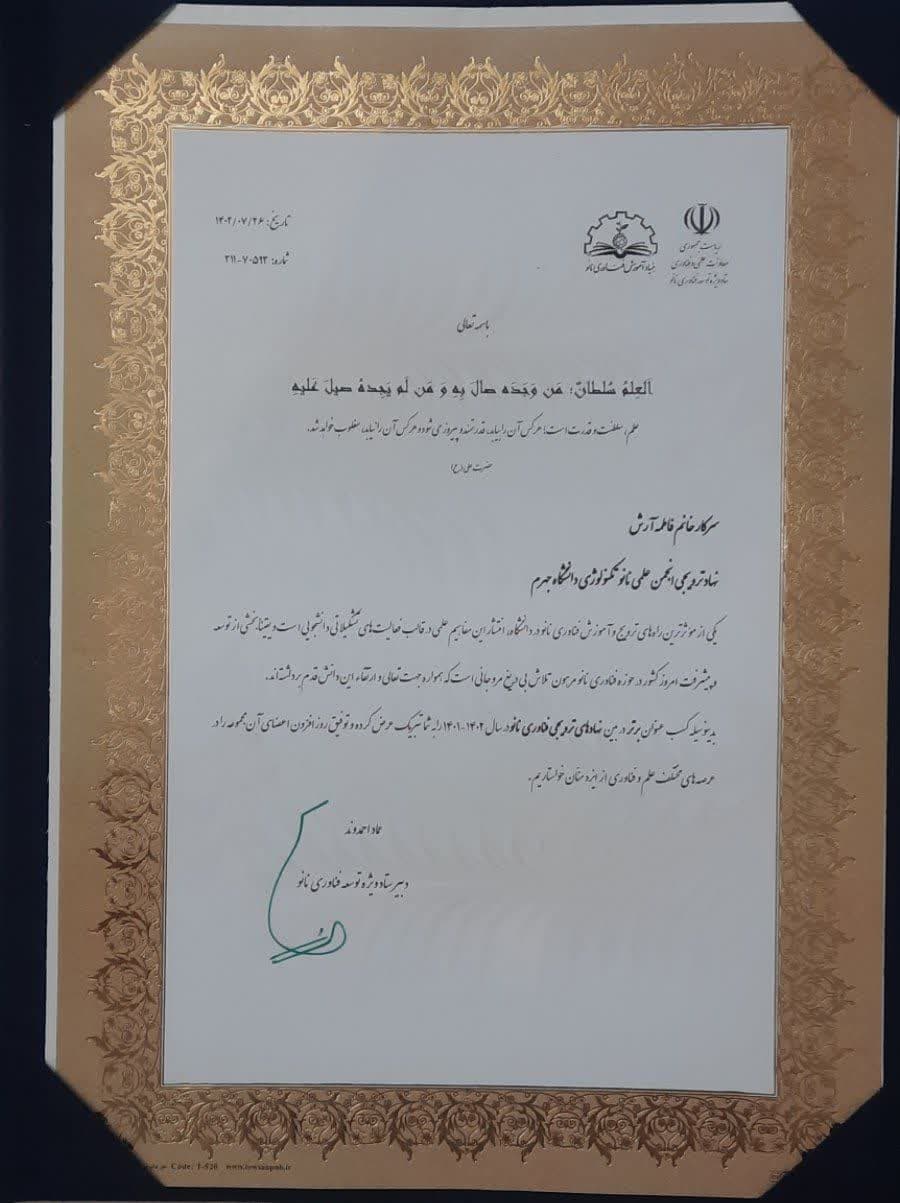 تاریخ: ۱۴۰۲/۰۷/۲۶
شماره: ۲۱۱-۷۰۵۹۳
ریاست جمهوری
معاونت علمی و فناوری
ستاد ویژه توسعه فناوری نانو
بنیاد آموزش فناوری نانو
باسمه تعالی
اَلعِلمُ سُلطانٌ؛ مَن وَجَدَه صالَ بِهِ وَ مَن لَم یَجِدهُ صیلَ عَلَیهِ
علم، سلطنت و قدرت است؛ هرکس آن را بیابد، قدرتمند و پیروز می شود و هرکس آن را نیابد، مغلوب خواهد شد.
حضرت علی (ع)
سرکار خانم فاطمه آرش
نهاد ترویجی انجمن علمی نانوتکنولوژی دانشگاه جهرم
یکی از موثرترین راه های ترویج و آموزش فناوری نانو در دانشگاه، انتشار این مفاهیم علمی در قالب فعالیت های تشکیلاتی دانشجویی است و یقینا، بخشی از توسعه
و پیشرفت امروز کشور در حوزه فناوری نانو مرهون تلاش بی دریغ مروجانی است که همواره جهت تعالی و ارتقاء این دانش قدم برداشته‌اند.
بدینوسیله کسب عنوان برتر در بین نهادهای ترویجی فناوری نانو در سال ۱۴۰۲-۱۴۰۱ را به شما تبریک عرض کرده و توفیق روزافزون اعضای آن مجموعه را در
عرصه های مختلف علم و فناوری از ایزد منان خواستاریم.
عماد احمدوند
دبیر ستاد ویژه توسعه فناوری نانو
Code: T-520